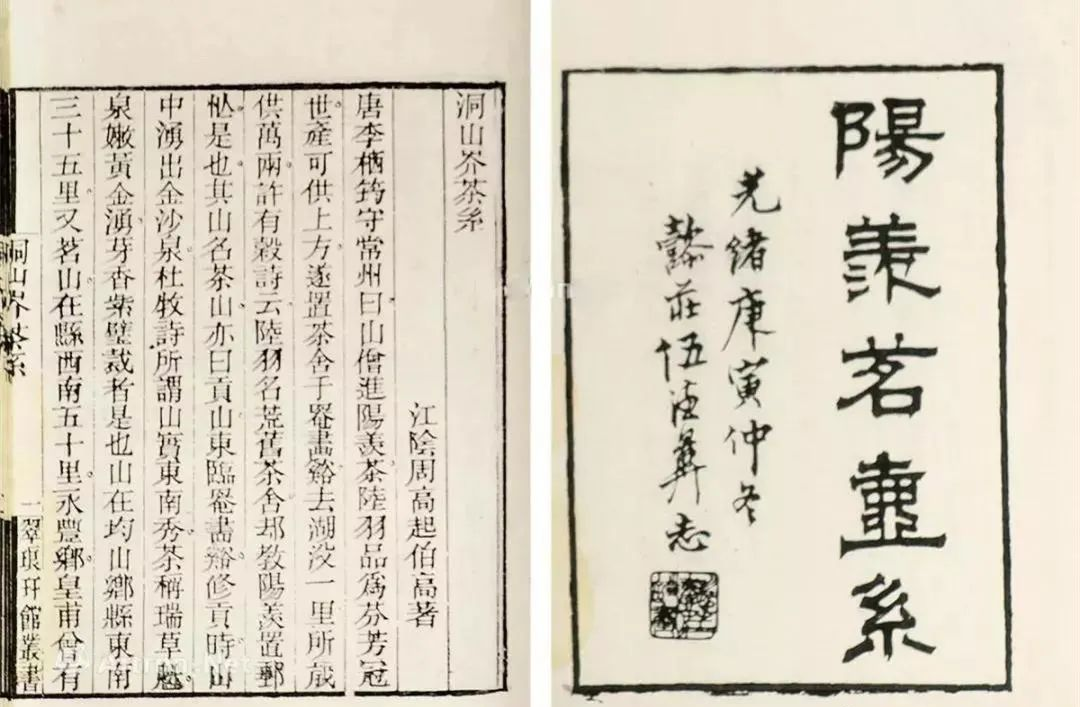 陽羨茗壺系
光緒庚寅仲冬
懿莊伍德彝志
洞山岕茶系
江陰周高起伯高著
唐李栖筠守常州曰山僧進陽羨茶陸羽品爲芬芳冠
世產可供上方遂置茶舍于罨畫谿去湖没一里所歲
供萬兩許有穀詩云陸羽名荒舊茶舍却敎陽羨置郵
忙是也其山名茶山亦曰貢山東臨罨畫谿修貢時山
中湧出金沙泉杜牧詩所謂山實東南秀茶稱瑞草魁
泉嫩黃金湧芽香紫璧裁者是也山在均山鄉縣東南
三十五里又茗山在縣西南五十里永豐鄉皇甫曾有
洞山岕茶系
一
翠琅玕館叢書